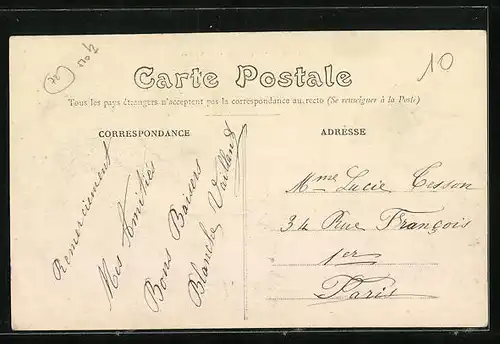 10
Carte Postale
Tous les pays étrangers n'acceptent pas la correspondance au recto (Se renseigner à la Poste)
CORRESPONDANCE
Remerciement
Mes Amitiés
Bons Baisers
Blanche Vaillant
ADRESSE
Mme Lucie Cesson
34 Rue François
1er
Paris